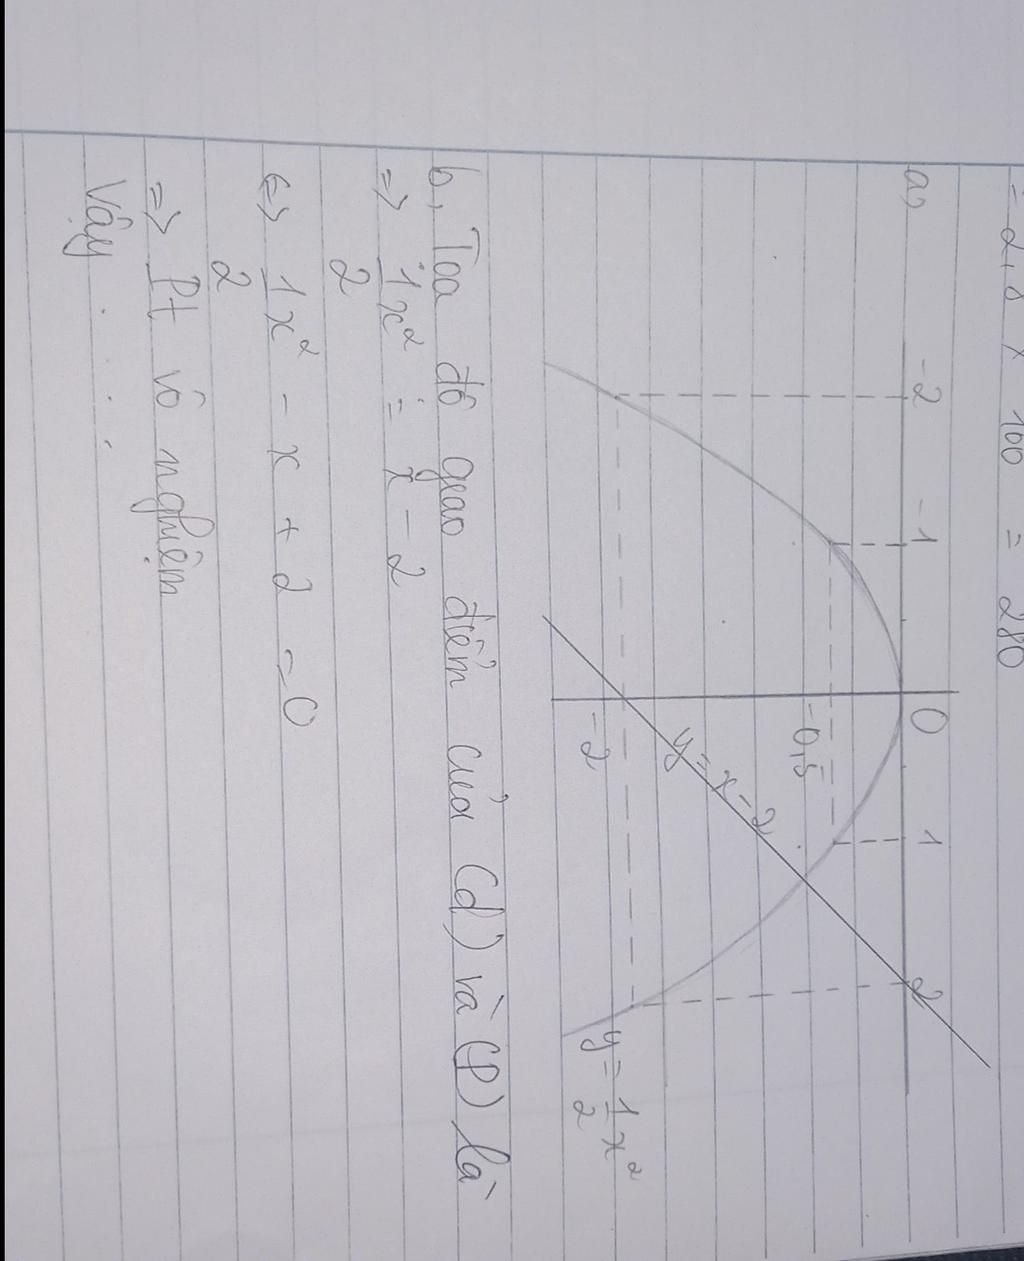 = 2,8 x 100 = 280
a,
-2 -1 0 1 2
-0,5
y = x - 2
-2
y = 1/2 x²
b, Tọa độ giao điểm của (d) và (P) là
=> 1/2 x² = x - 2
<=> 1/2 x² - x + 2 = 0
=> Pt vô nghiệm
Vậy . . . .